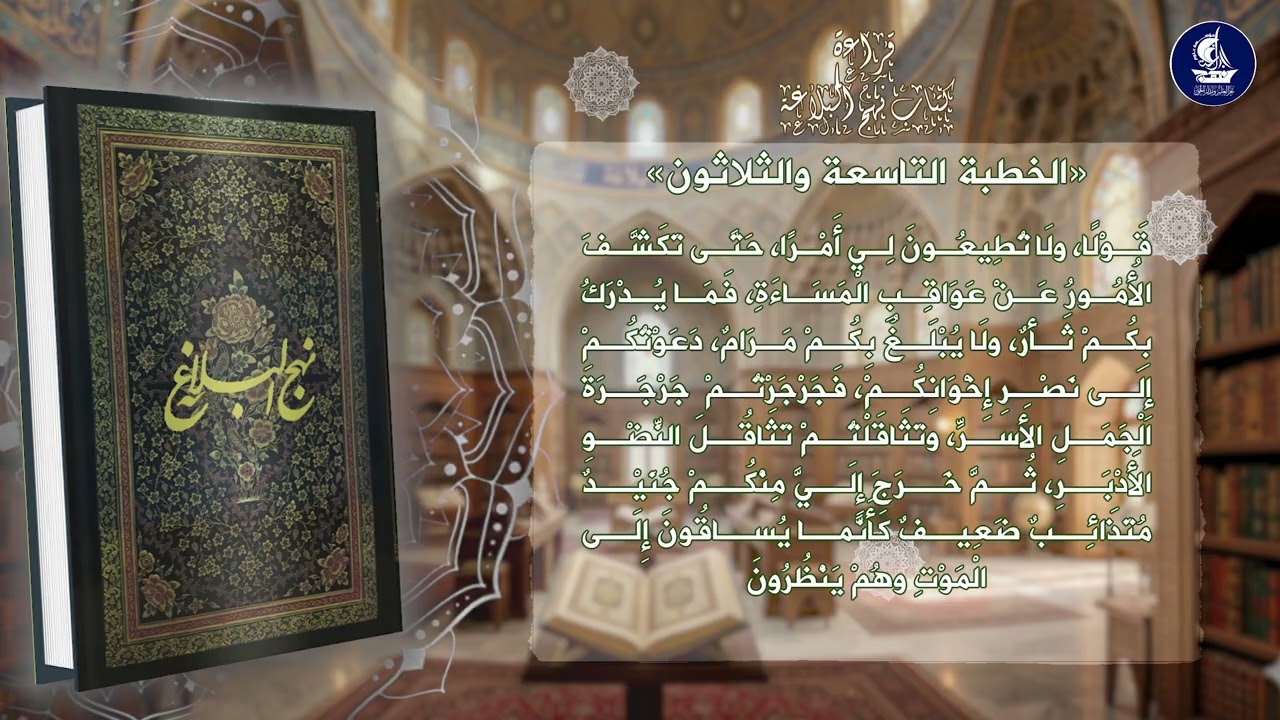 قراءة
كتاب نهج البلاغة
«الخطبة التاسعة والثلاثون»
قَوْلًا، ولَا تُطِيعُونَ لِي أَمْرًا، حَتَّى تَكَشَّفَ
الأُمُورُ عَنْ عَوَاقِبِ الْمَسَاءَةِ، فَمَا يُدْرَكُ
بِكُمْ ثَأرٌ، ولَا يُبْلَغُ بِكُمْ مَرَامٌ، دَعَوْتُكُمْ
إِلَى نَصْرِ إِخْوَانِكُمْ، فَجَرْجَرْتُمْ جَرْجَرَةَ
الْجَمَلِ الأَسَرِّ، وَتَثَاقَلْتُمْ تَثَاقُلَ النِّضْوِ
الأَدْبَرِ، ثُمَّ خَرَجَ إِلَيَّ مِنْكُمْ جُنَيْدٌ
مُتذَائِبٌ ضَعِيفٌ كَأَنَّما يُسَاقُونَ إِلَى
الْمَوْتِ وهُمْ يَنْظُرُونَ
نهج البلاغة